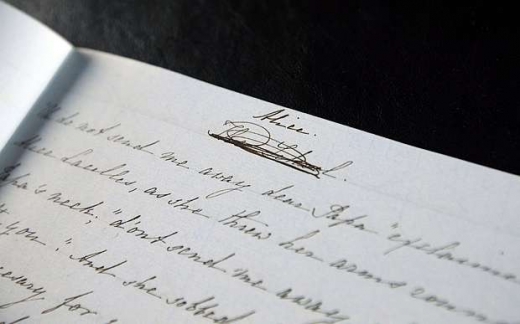 Alice.
do not send me away dear Papa" exclaimed
Lascelles, as she threw her arms
neck; "don't send me away
you." And she sobbed
away for